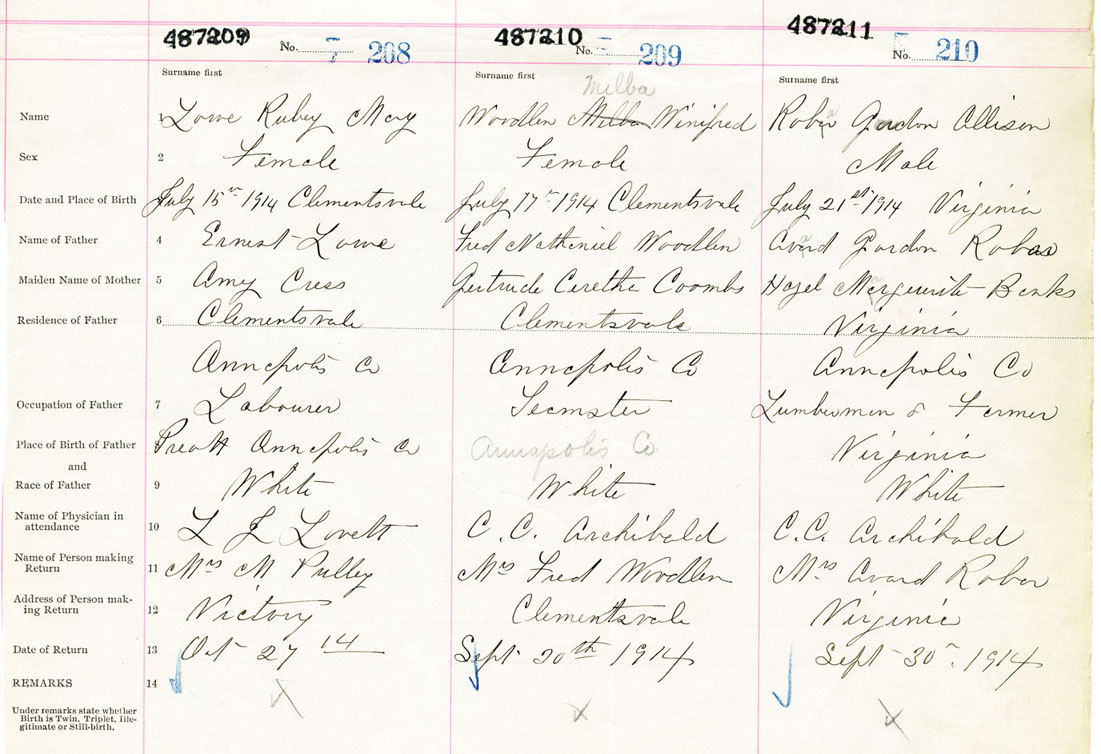 487209 No. 208 487210 No. 209 487211 No. 210
Surname first Surname first Surname first
Milba
Name 1 Lowe Rubey Mary Woodlen Milba Winifred Robar Gordon Allison
Sex 2 Female Female Male
Date and Place of Birth July 15th 1914 Clementsvale July 17th 1914 Clementsvale July 21st 1914 Virginia
Name of Father 4 Ernest Lowe Fred Nathaniel Woodlen Avard Gordon Robar
Maiden Name of Mother 5 Amy Cress Gertrude Aretha Coombs Hazel Marguerite Banks
Residence of Father 6 Clementsvale Clementsvale Virginia
Annapolis Co Annapolis Co Annapolis Co
Occupation of Father 7 Labourer Teamster Lumberman & Farmer
Place of Birth of Father Annapolis Co Annapolis Co. Virginia
and
Race of Father 9 White White White
Name of Physician in
attendance 10 L J Lovett C.C. Archibald C.C. Archibald
Name of Person making
Return 11 Mrs M Pulley Mrs Fred Woodlen Mrs Avard Robar
Address of Person mak-
ing Return 12 Victory Clementsvale Virginia
Date of Return 13 Oct 27 14 Sept 30th 1914 Sept 30th 1914
REMARKS 14
Under remarks state whether
Birth is Twin, Triplet, Ille-
gitimate or Still-birth.